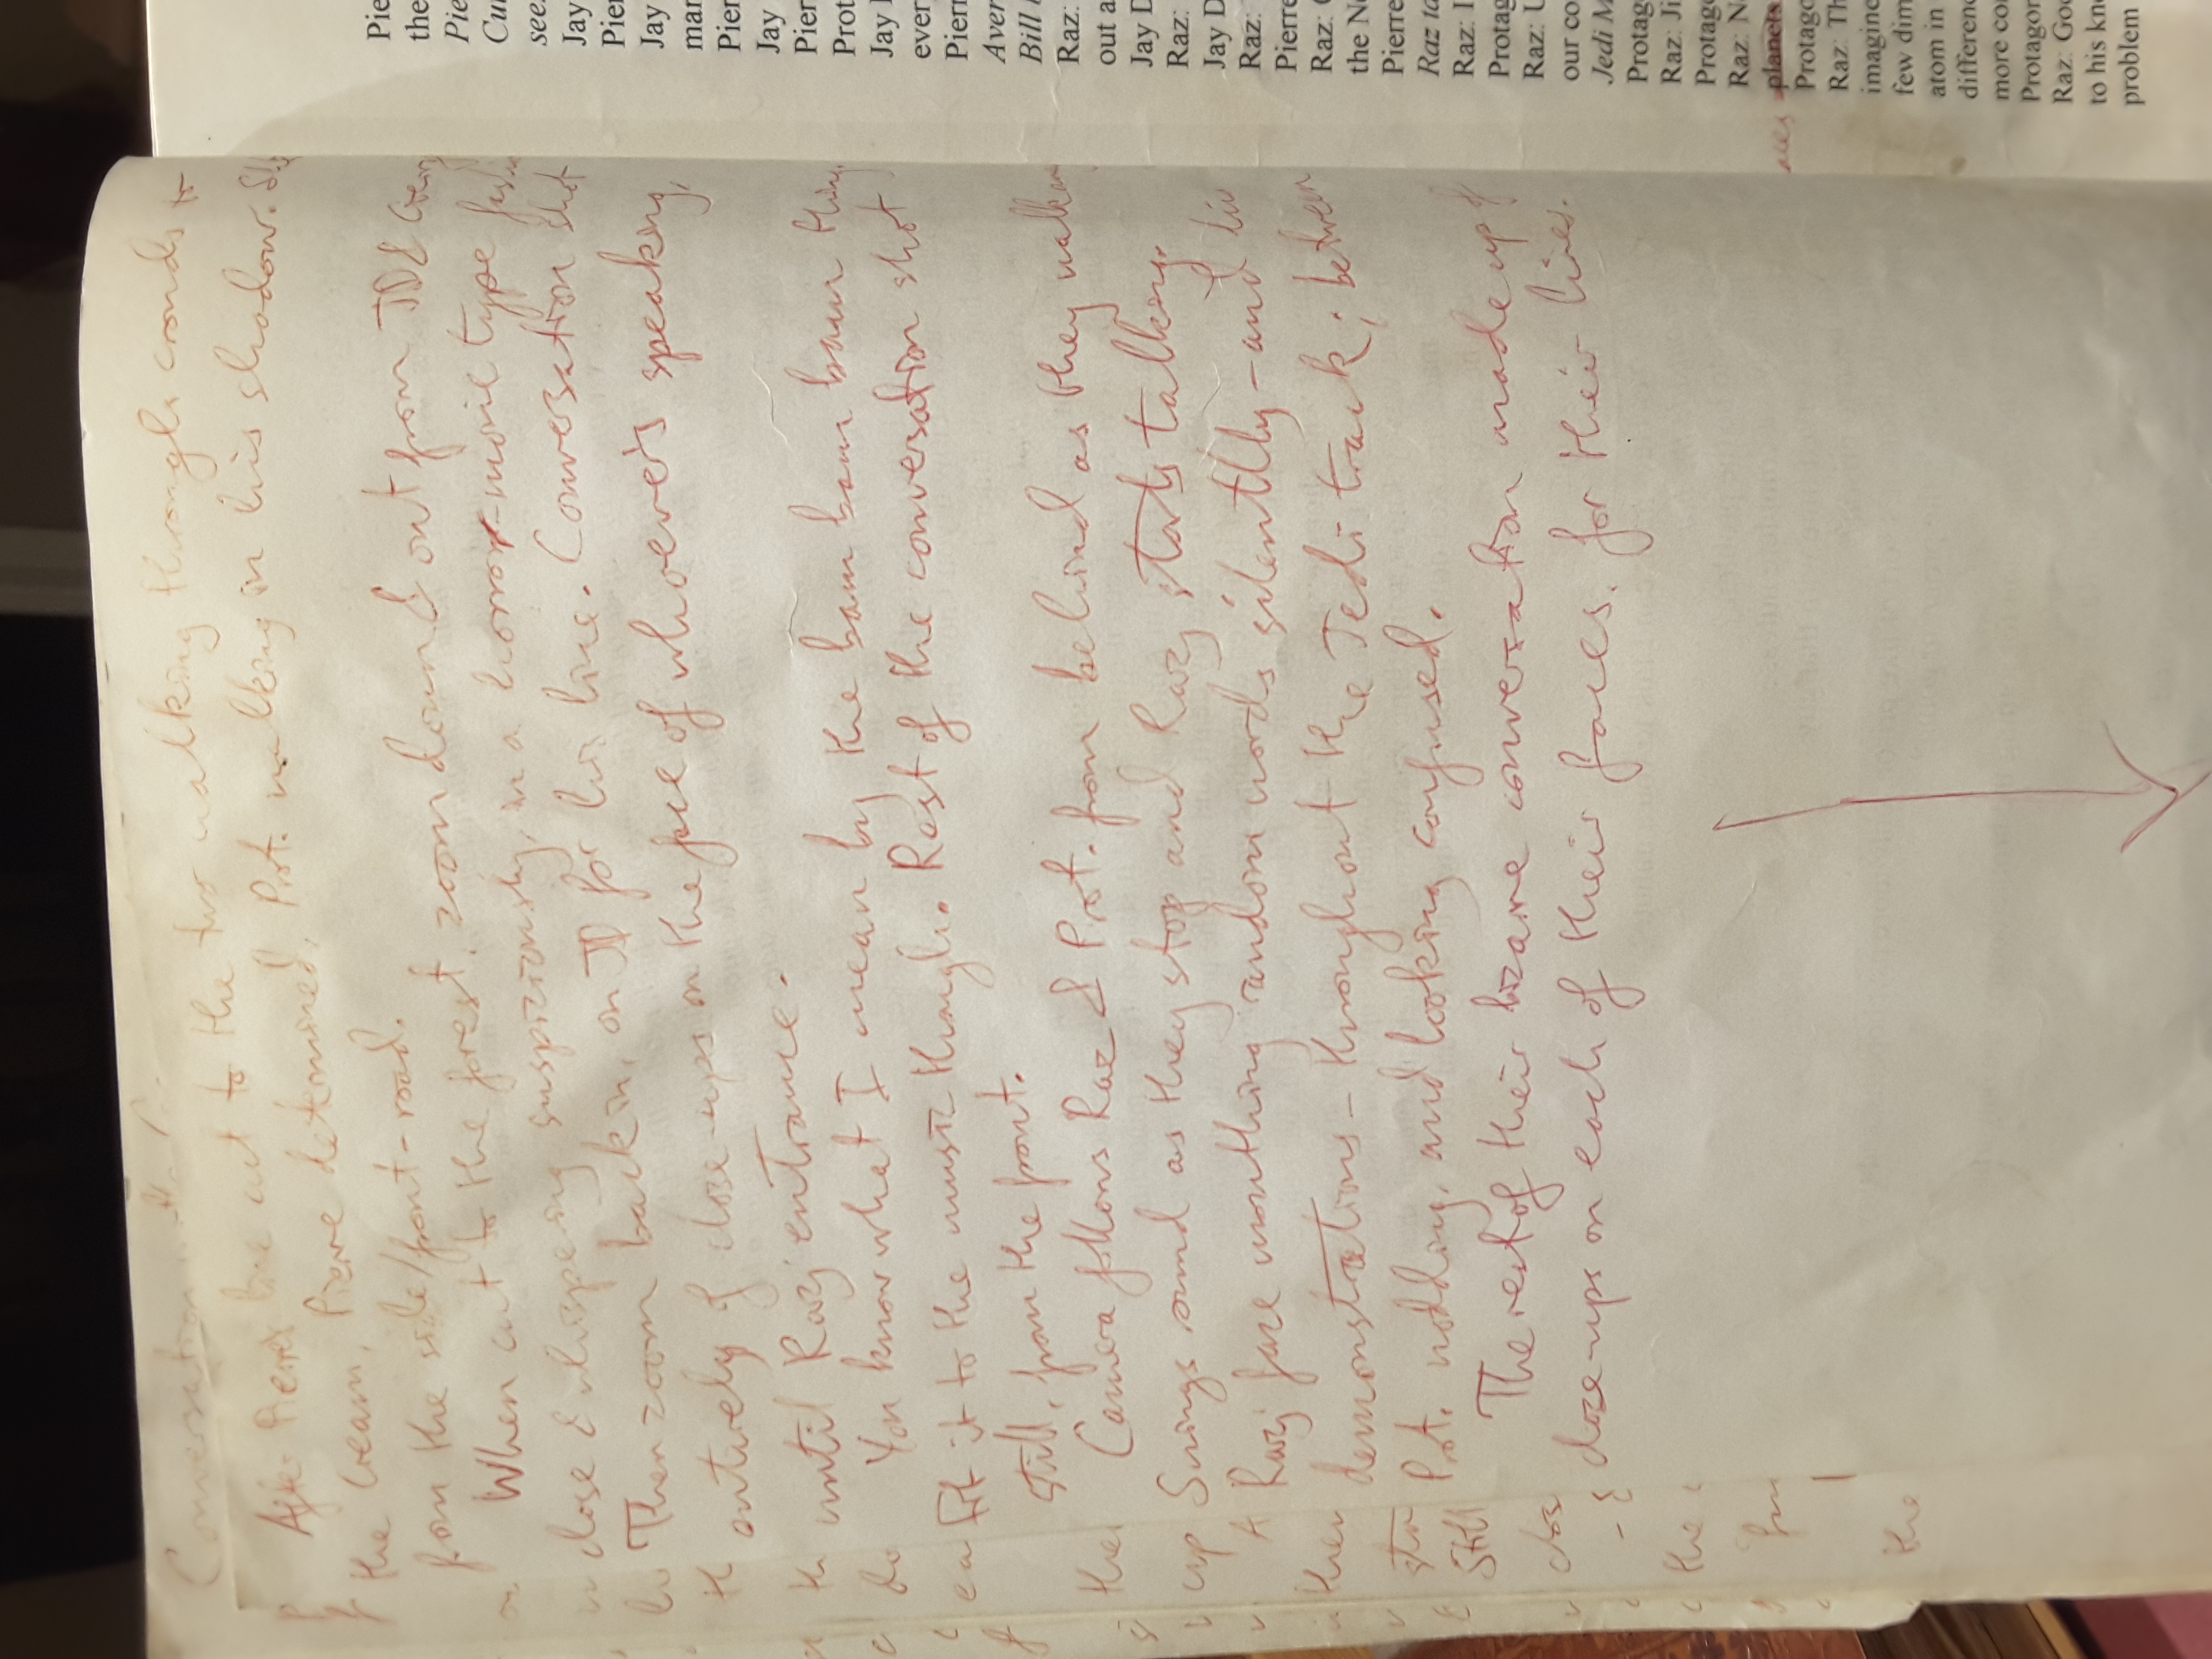 Conversation with
After Pierre's line cut to the two walking through crowds to
the Cream, Pierre determined, Prot. walking in his shadow.
from the side/front-road.
When cut to the forest, zoom down & out from JD &
close & whispering suspiciously, in a horror-movie type
Then zoom back in, on JD for his line. Conversation shot
entirely of close-ups on the face of whoever's speaking,
until Raz' entrance.
You know what I mean by the bam bam bam thing.
Fit it to the music though. Rest of the conversation shot
still, from the front.
Camera follows Raz & Prot. from behind as they walk
Swings round as they stop and Raz starts talking.
Raz' face mouthing random words silently – and
demonstrations – throughout the Jedi track; between
Prot. nodding, and looking confused.
The rest of their bizarre conversation made up of
close-ups on each of their faces, for their lines.
the
do
up
Still
the
the
Pie
the
Pie
Cu
see
Jay
Pier
Jay
man
Pier
Jay
Pier
Prot
Jay
ever
Pierr
Aver
Bill
Raz:
out a
Jay D
Raz:
Jay D
Raz:
Pierre
Raz:
the N
Pierre
Raz ta
Raz: I
Protag
Raz: U
our co
Jedi M
Protag
Raz: Ji
Protag
Raz: N
planets
Protago
Raz: Th
imagine
few dim
atom in
differenc
more co
Protagon
Raz: Goo
to his kn
problem